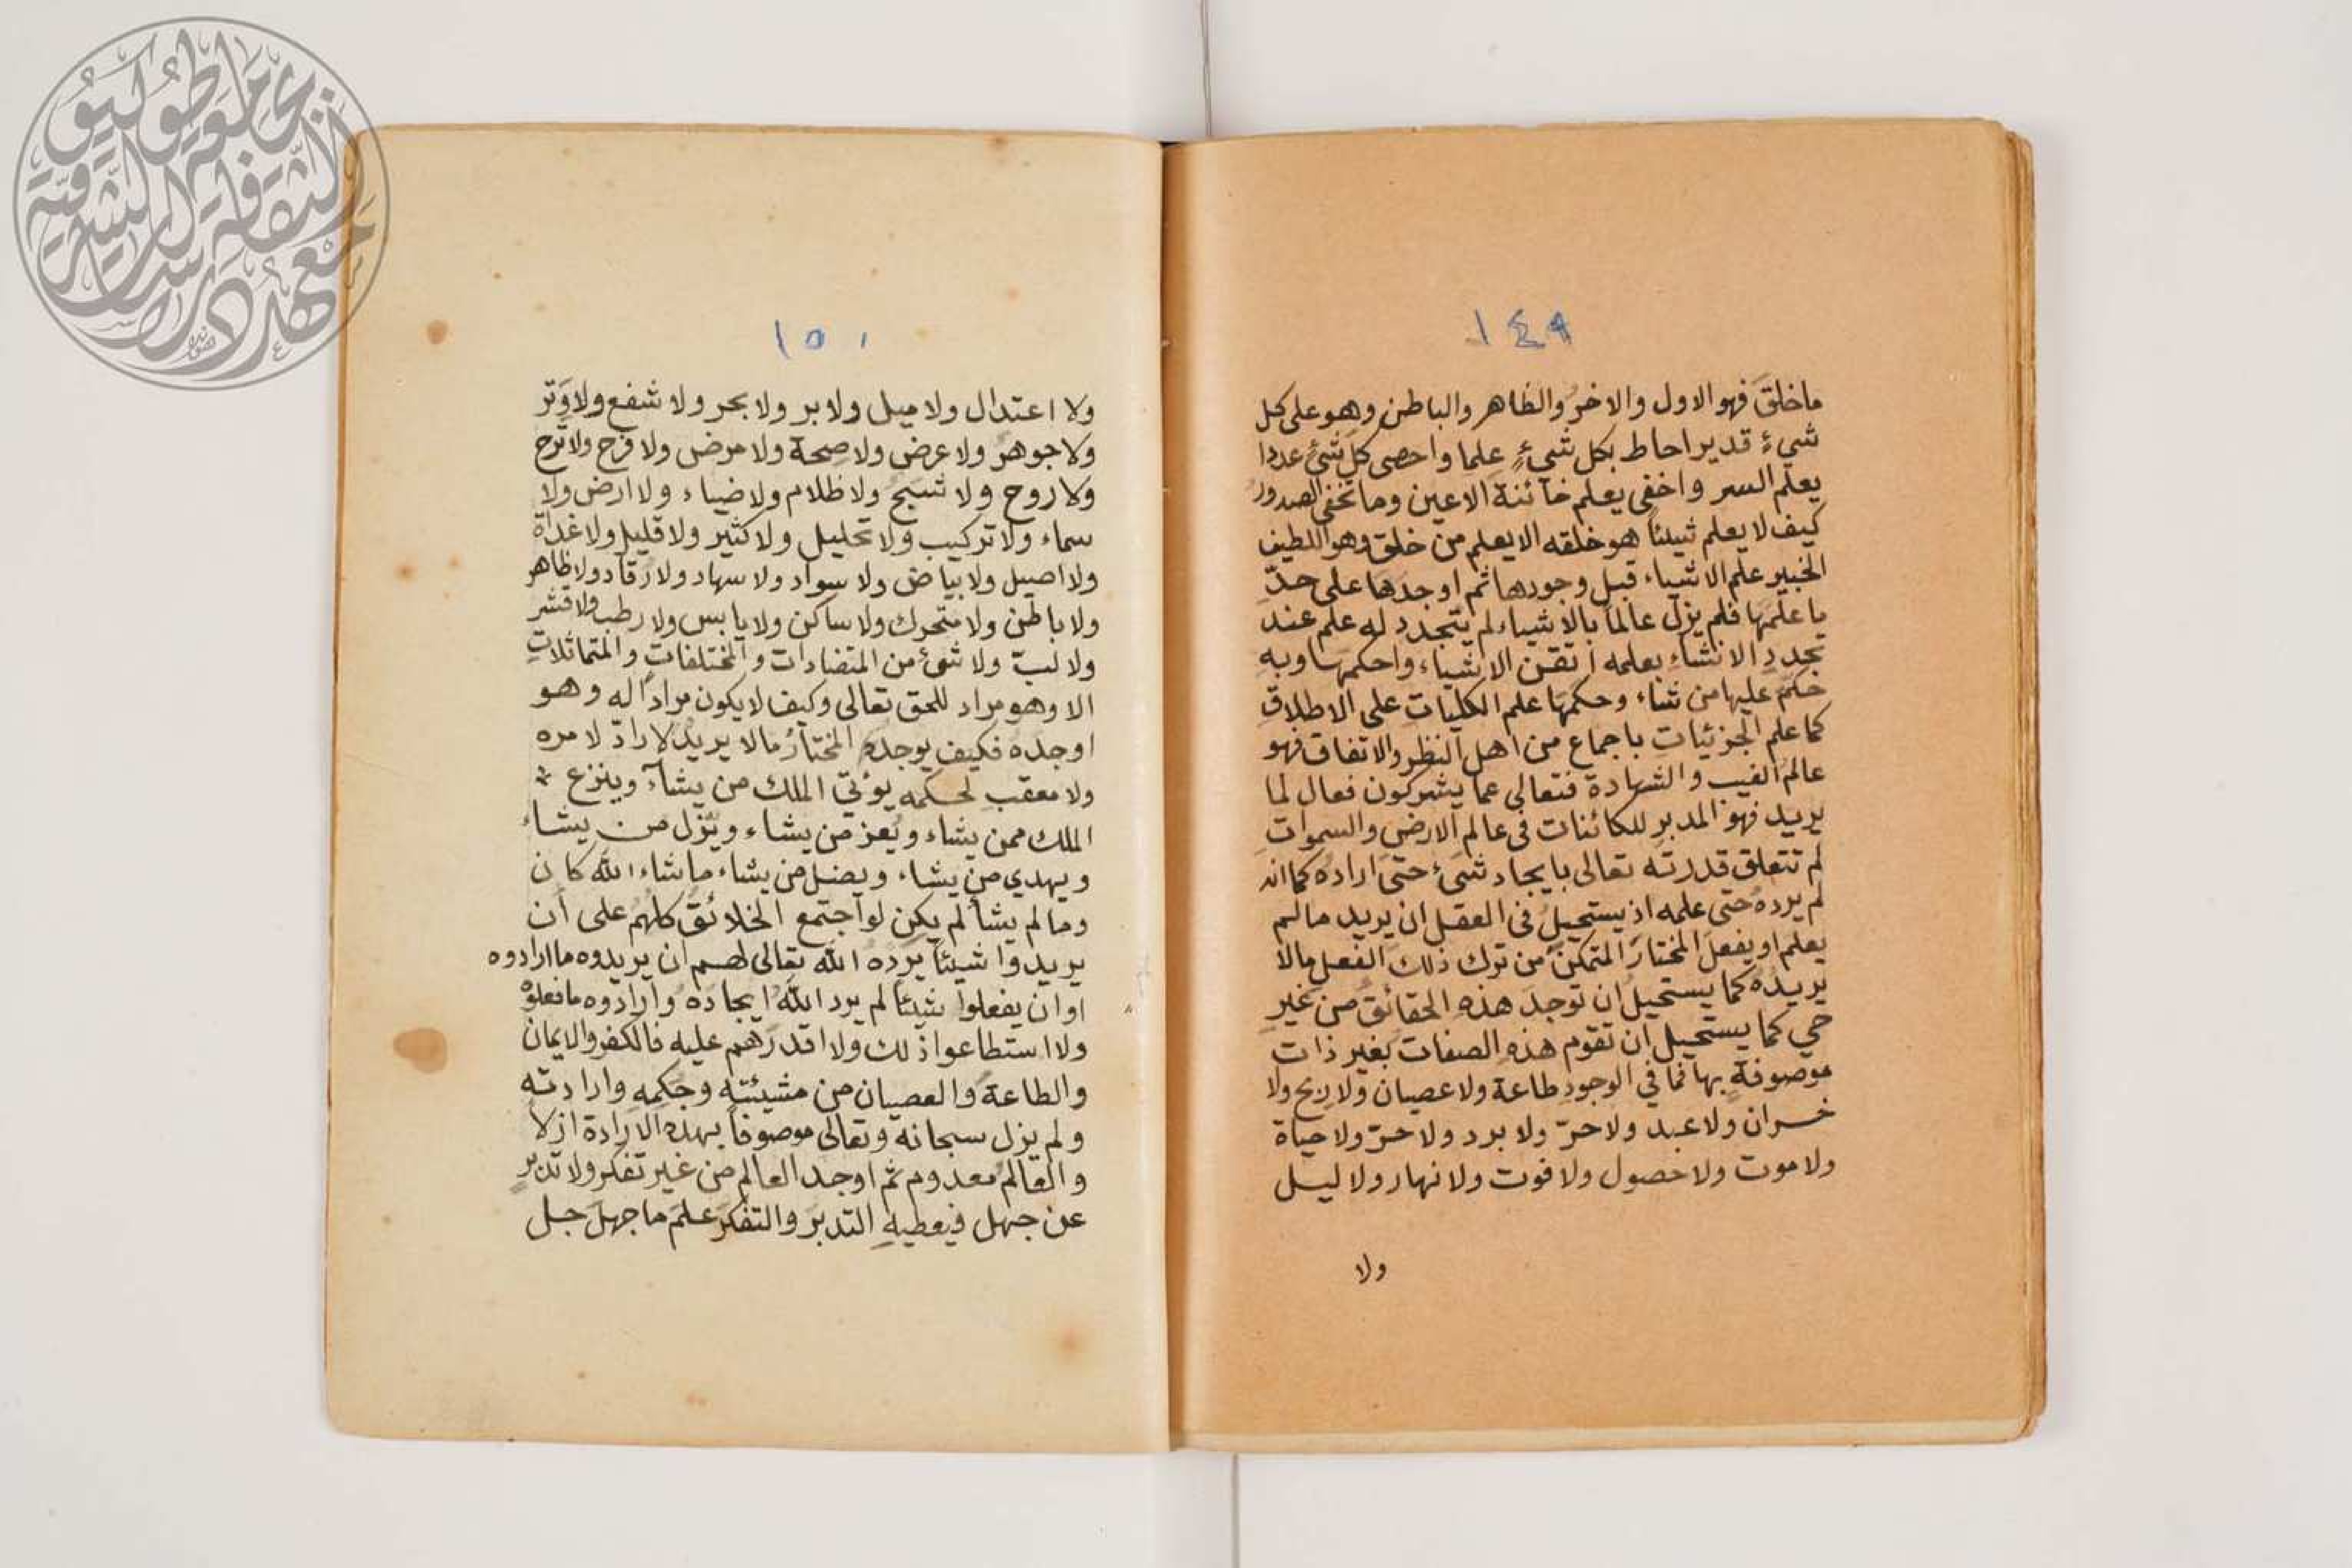 ١٤٩
ما خلقَ فهو الاول والاخرُ والظاهر والباطن وهو على كل
شيءٍ قدير احاط بكل شيءٍ علما واحصى كل شئٍ عددا
يعلم السر واخفى يعلم خآئنة الاعين وما تخفى الصدورُ
كيف لا يعلم شيئاً هو خلقه الا يعلم من خلق وهو اللطيف
الخبير علم الاشياء قبل وجودها ثم اوجدها على حدّ
ما علمها فلم يزل عالماً بالاشياء لم يتجدد له علم عند
تجددِ الانشاءِ بعلمه اتقن الاشياء واحكمها وبه
حكم عليها من شاء وحكمها علم الكليات على الاطلاقِ
كما علم الجزئيات باجماع من اهل النظر والاتفاق فهو
عالمُ الغيب والشهادة فتعالى عما يشركون فعال لما
يريد فهو المدبر للكائنات فى عالم الارض والسموات
لم تتعلق قدرته تعالى بايجاد شئ حتى اراده كما انه
لم يرده حتى علمه اذ يستحيلُ فى العقل ان يريد ما لم
يعلم او يفعل المختار المتمكن من ترك ذلك الفعل ما لا
يريدُه كما يستحيلُ ان توجد هذهِ الحقائق من غيرِ
حي كما يستحيل ان تقوم هذهِ الصفات بغير ذات
موصوفة بها فما في الوجود طاعة ولا عصيان ولا ربح ولا
خسران ولا عبد ولا حرّ ولا برد ولا حرّ ولا حياة
ولا موت ولا حصول ولا فوت ولا نهار ولا ليل
ولا
١٥٠
ولا اعتدال ولا ميل ولا بر ولا بحر ولا شفع ولا وَتر
ولا جوهر ولا عرض ولا صحة ولا مرض ولا فرح ولا ترح
ولا روح ولا شبح ولا ظلام ولا ضياء ولا ارض ولا
سماء ولا تركيب ولا تحليل ولا كثير ولا قليل ولا غداة
ولا اصيل ولا بياض ولا سواد ولا سهاد ولا رقاد ولا ظاهر
ولا باطن ولا متحرك ولا ساكن ولا يابس ولا رطب ولا قشر
ولا لبّ ولا شئ من المتضادات والمختلفات والمتماثلاتِ
الا وهو مراد للحق تعالى وكيف لا يكون مراداً له وهو
اوجده فكيف يوجده المختارُ ما لا يريدُ لا رادّ لامره
ولا معقب لحكمه يؤتي الملك من يشآء وينزع
الملك ممن يشاء ويعز من يشاء ويذل من يشاء
ويهدي من يشاء ويضل من يشاء ما شاء الله كان
وما لم يشأ لم يكن لو اجتمع الخلائق كلهم على ان
يريدوا شيئاً يرده الله تعالى لهم ان يريدوه ما ارادوه
او ان يفعلوا شيئاً لم يرد الله ايجاده وارادوه ما فعلوه
ولا استطاعوا ذلك ولا اقدرهم عليه فالكفر والايمان
والطاعة والعصيان من مشيئته وحكمه وارادته
ولم يزل سبحانه وتعالى موصوفاً بهذه الارادة ازلا
والعالم معدوم ثم اوجد العالم من غير تفكر ولا تدبرٍ
عن جهل فيعطيهِ التدبر والتفكر علم ما جهل جل
معهد الثقافة والدراسات الشرقية
بجامعة طوكيو